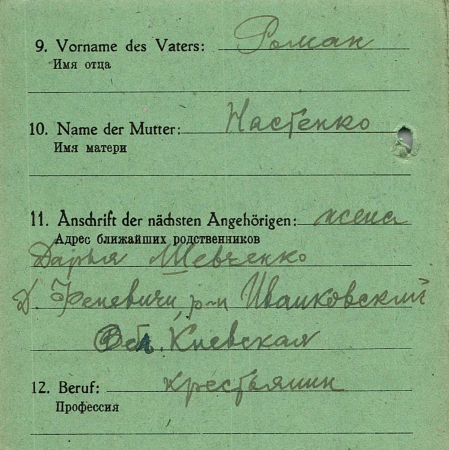 9. Vorname des Vaters: Роман
Имя отца
10. Name der Mutter: Настенко
Имя матери
11. Anschrift der nächsten Angehörigen: жена
Адрес ближайших родственников
Дарья Шевченко
Д. Феневичи, р-н Иванковский
Обл. Киевская
12. Beruf: крестьянин
Профессия